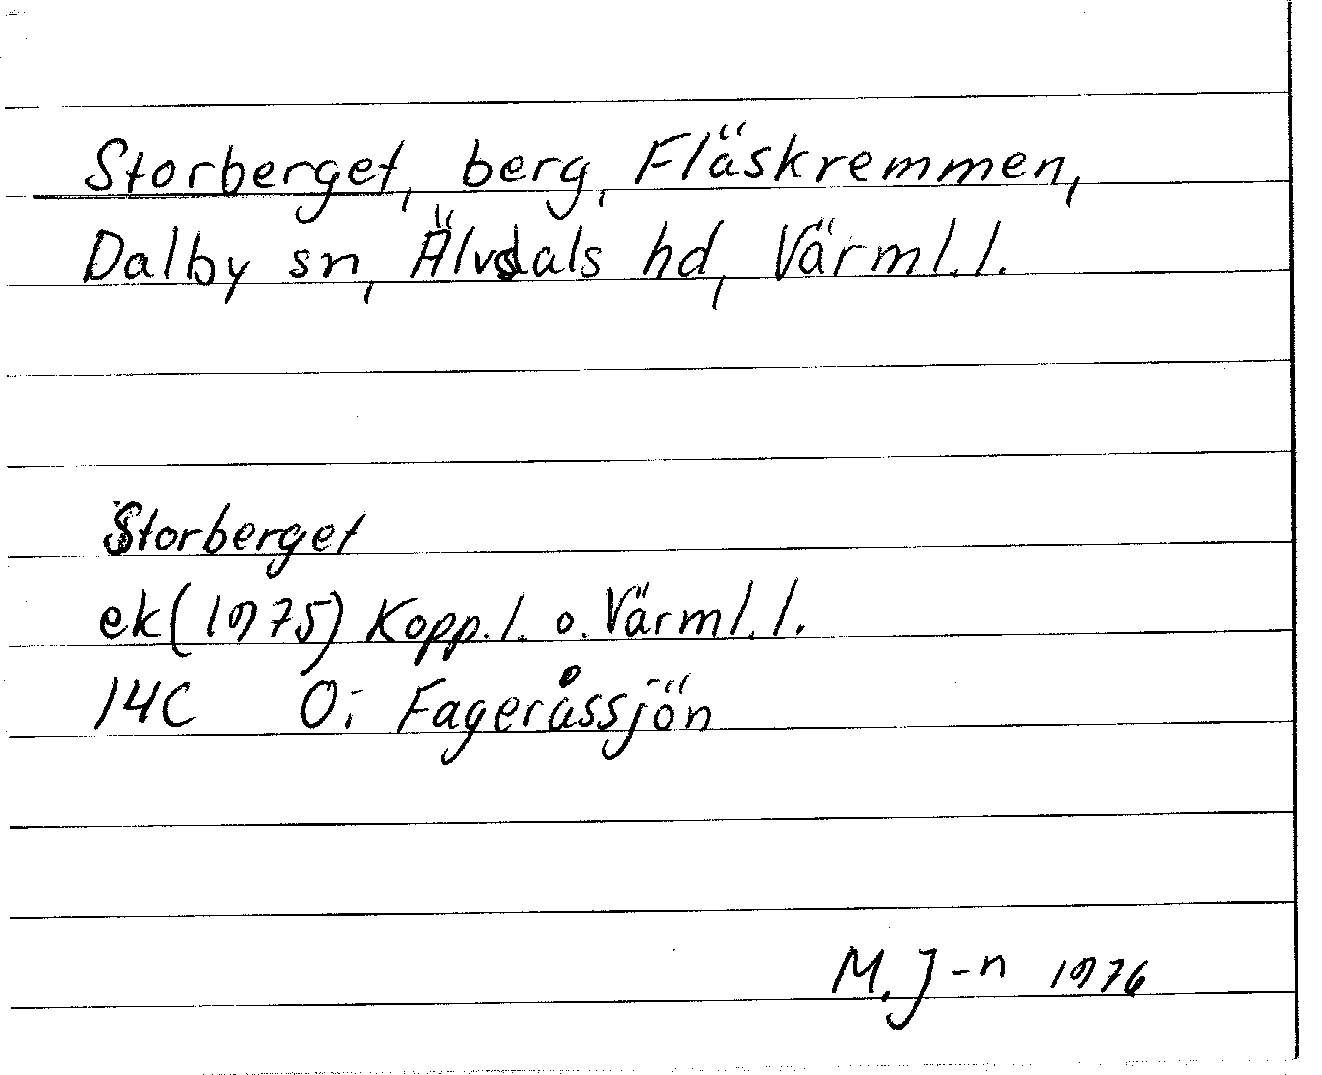 Storberget, berg, Fläskremmen,
Dalby sn, Älvdals hd, Värml. l.
Storberget
ek (1975) Kopp. l. o. Värml. l.
14C O; Fageråssjön
M. J-n 1976